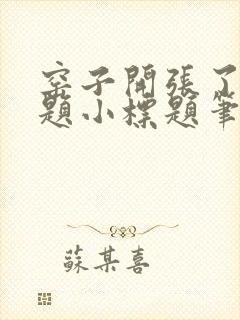 窑子開張了
題小標題筆
蘇某喜